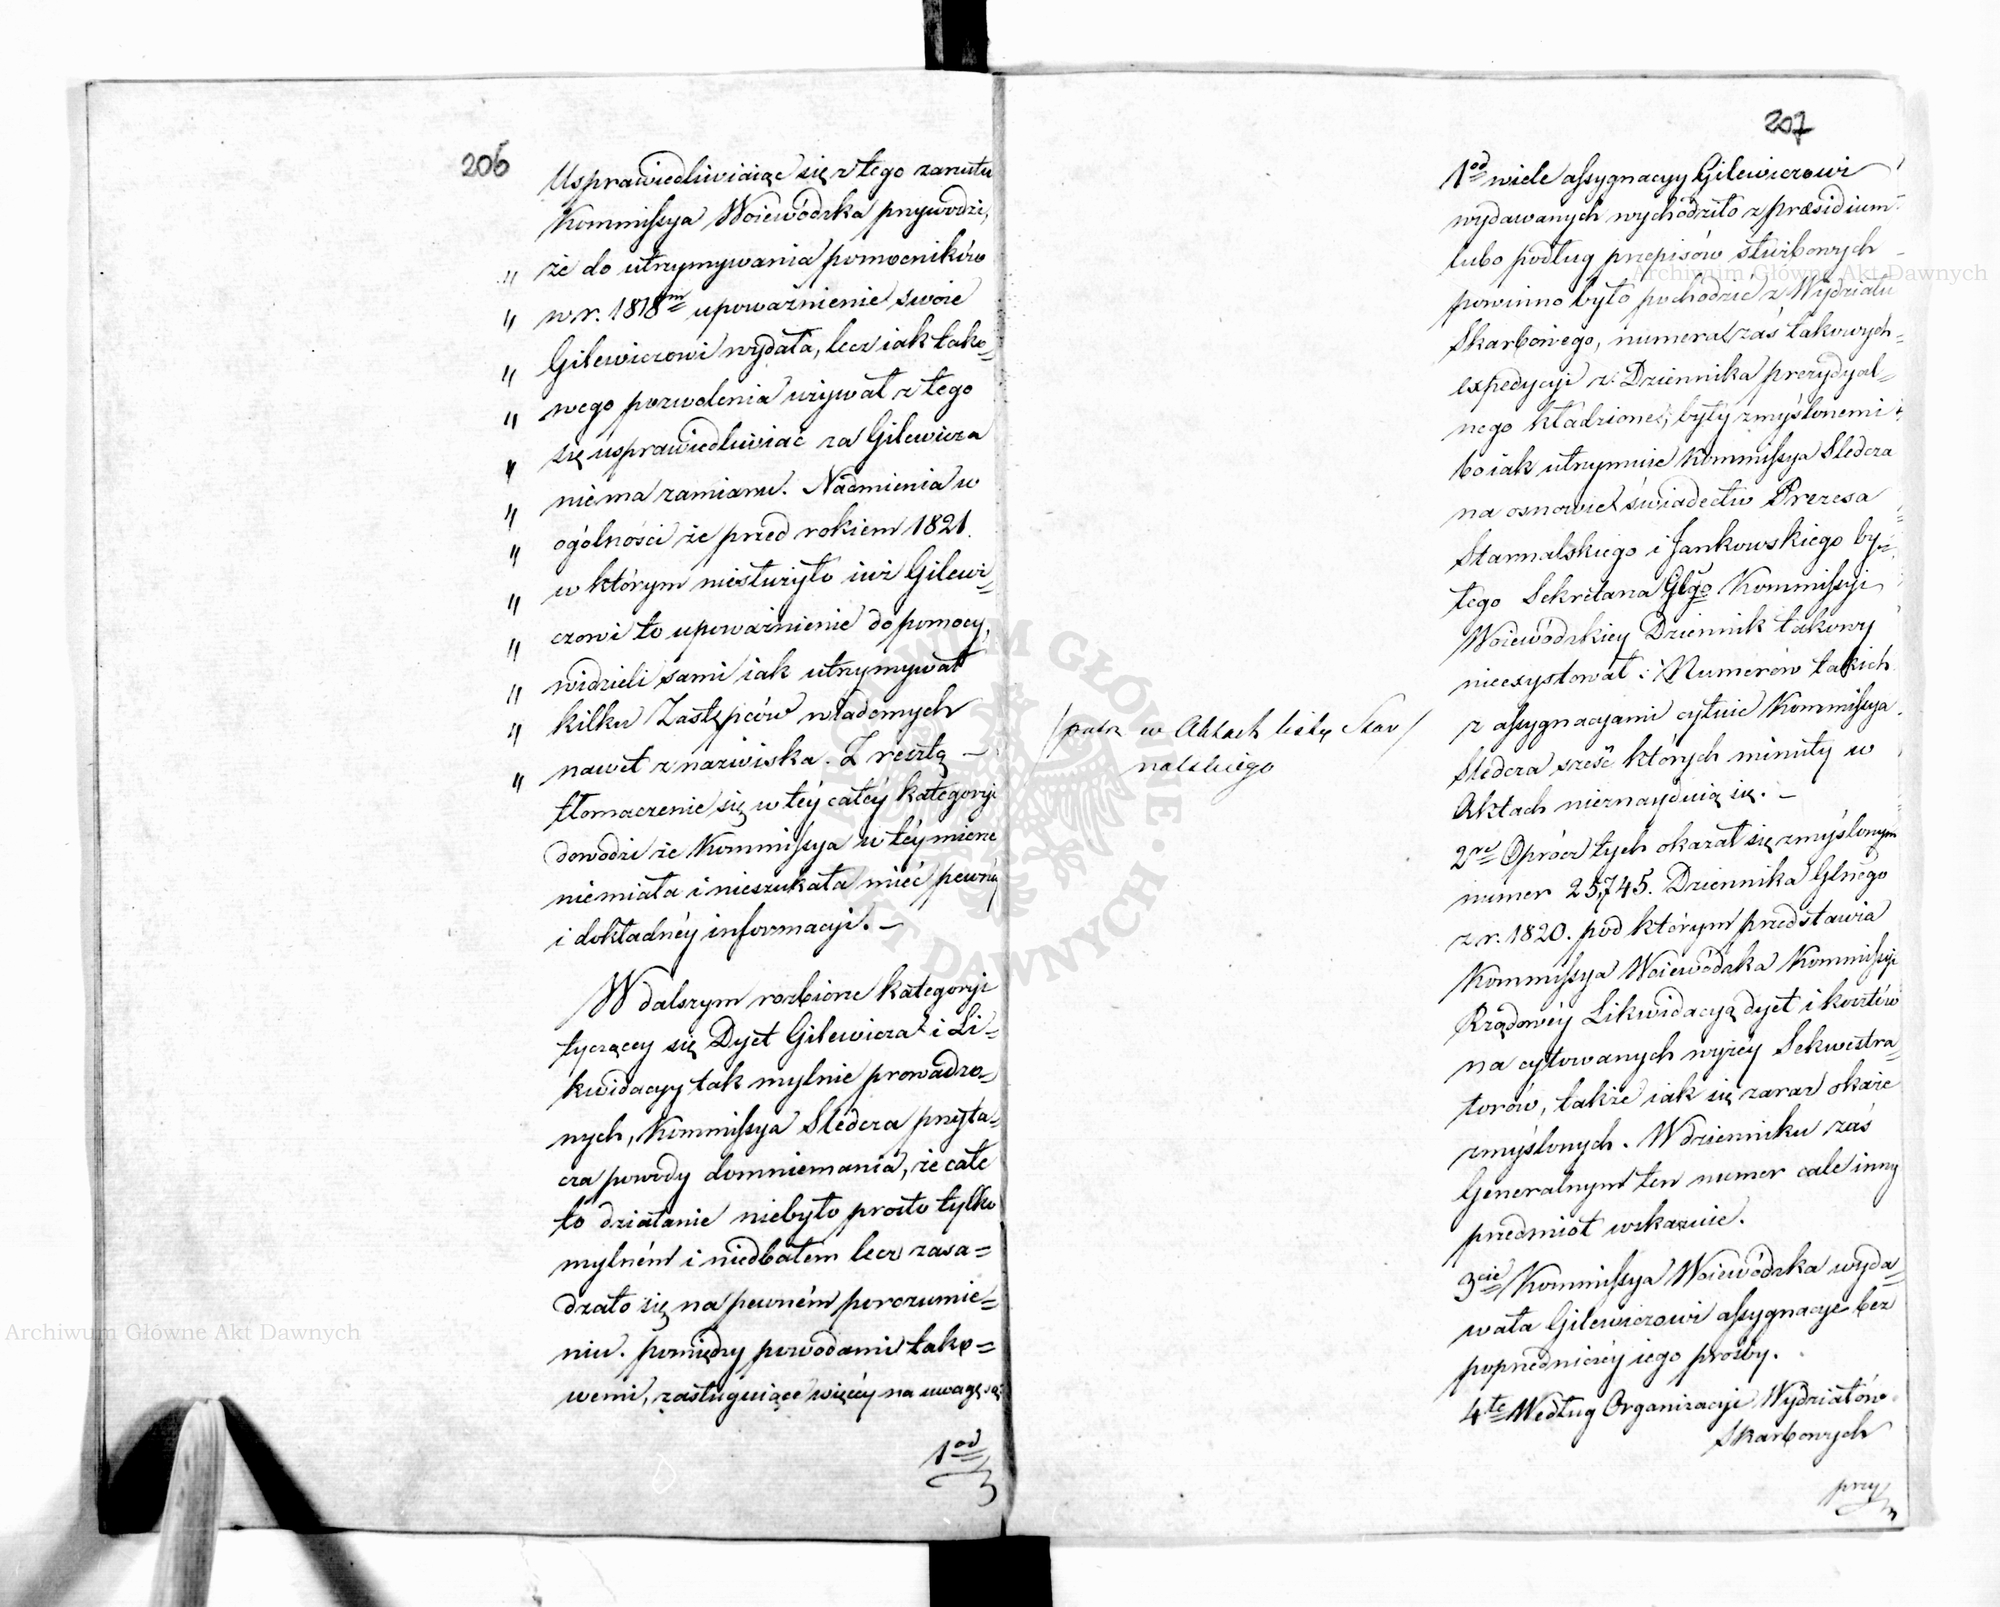 206
Usprawiedliwiaiąc się z tego zarzutu
Kommissya Woiewódzka przywodzi,
„ że do utrzymywania pomocników
„ w r. 1818m upoważnienie swoie
„ Gilewiczowi wydała, lecz iak tako=
„ wego pozwolenia używał z tego
„ się usprawiedliwiać za Gilewicza
„ niema zamiaru. Nadmienia w
„ ogólności że przed rokiem 1821.
„ w którym niesłużyło iuż Gilewi=
„ czowi to upoważnienie do pomocy,
„ widzieli sami iak utrzymywał
„ kilku Zastępców wiadomych
„ nawet z nazwiska. Z resztą —
tłomaczenie się w téy całéy kategoryi
dowodzi że Kommissya w téy mierze
niemiała i nieszukała mieć pewnéy
i dokładnéy informacyi. —
W dalszym rozbiorze kategoryi
tyczącey się Dyet Gilewicza i Li=
kwidacyy tak mylnie prowadzo=
nych, Kommissya Śledcza przyta=
cza powody domniemania, że całe
to działanie niebyło prosto tylko
mylném i niedbałem lecz zasa=
dzało się na pewném porozumie=
niu. pomiędzy powodami tako=
wemi, zasługuiące więcéy na uwagę są:
1od
207
1od wiele assygnacyy Gilewiczowi
wydawanych wychodziło z præsidium
lubo podług przepisów służbowych
powinno było pochodzić z Wydziału
Skarbowego, numera zaś takowych
expedycyi z Dziennika prezydyal=
nego kładzione, były zmyślonemi
bo iak utrzymuie Kommissya Śledcza
na osnowie świadectw Prezesa
Starnalskiego i Jankowskiego by=
łego Sekretarza Glgo Kommissyi
Woiewódzkiey Dziennik takowy
nieexystował: Numerów takich
z assygnacyami cytuie Kommissya
Śledcza sześć których minuty w
Aktach nieznayduią się. —
/patrz w Aktach listę Star/
nalskiego
2re Oprócz tych okazał się zmyślonym
numer 25,745. Dziennika Glnego
z r. 1820. pod którym przedstawia
Kommissya Woiewódzka Kommissyi
Rządowéy Likwidacyą dyet i kosztów
na cytowanych wyżey Sekwestra=
torów, także iak się zaraz okaże
zmyślonych. W dzienniku zaś
Generalnym ten numer cale inny
przedmiot wskazuie.
3cie Kommissya Woiewódzka wyda=
wała Gilewiczowi assygnacye bez
poprzedniczéy iego prosby.
4te Według Organizacyi Wydziałów
Skarbowych
przy
Archiwum Główne Akt Dawnych
Archiwum Główne Akt Dawnych
ARCHIWUM GŁÓWNE AKT DAWNYCH